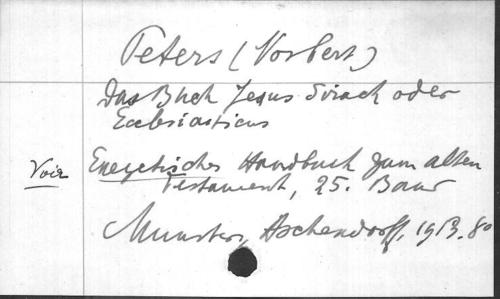 Peters (Norbert)
Das Buch Jesus Sirach oder
Ecclesiasticus
Voir Exegetisches Handbuch zum alten
Testament, 25. Band
Munster, Aschendorff, 1913. 8o